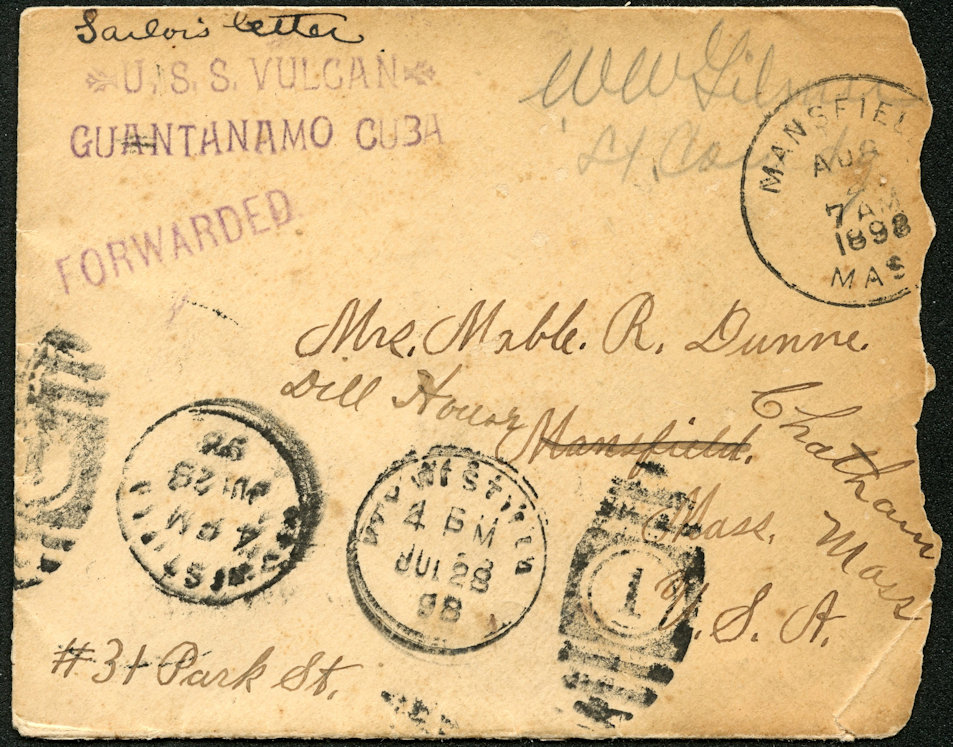 Sailor's letter
U.S.S. VULCAN
GUANTANAMO CUBA
W W Gilmer
Lt. Comdg
MANSFIEL
AUG
7 AM
1898
MAS
FORWARDED
Mrs. Mable. R. Dunne.
Dill House
Mansfield.
Chatham
Mass
Mass.
U. S. A.
28
98
4 PM
JUL 28
98
1
#31 Park St.